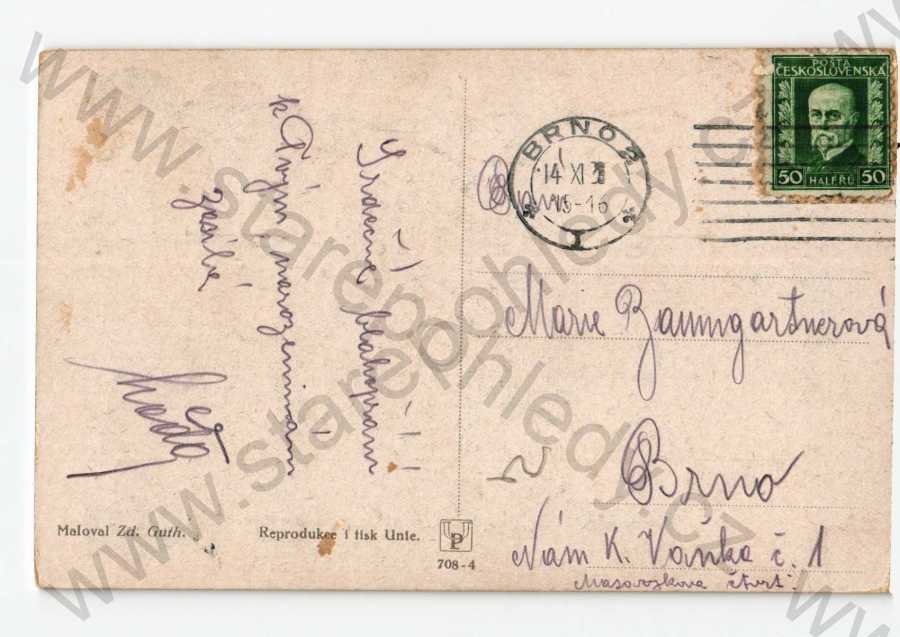 POŠTA
ČESKOSLOVENSKÁ
50 HALÉŘŮ 50
BRNO 2
14 XI
15-16
1
Srdečné blahopřání
k Tvým narozeninám
zasílá
Marie Baumgartnerová
Brno
Nám K. Vaňka č. 1
Masarykova čtvrť
Maloval Zd. Guth.
Reprodukce i tisk Unie.
UP
708-4
www.starepohledy.cz
www.starepohledy.cz